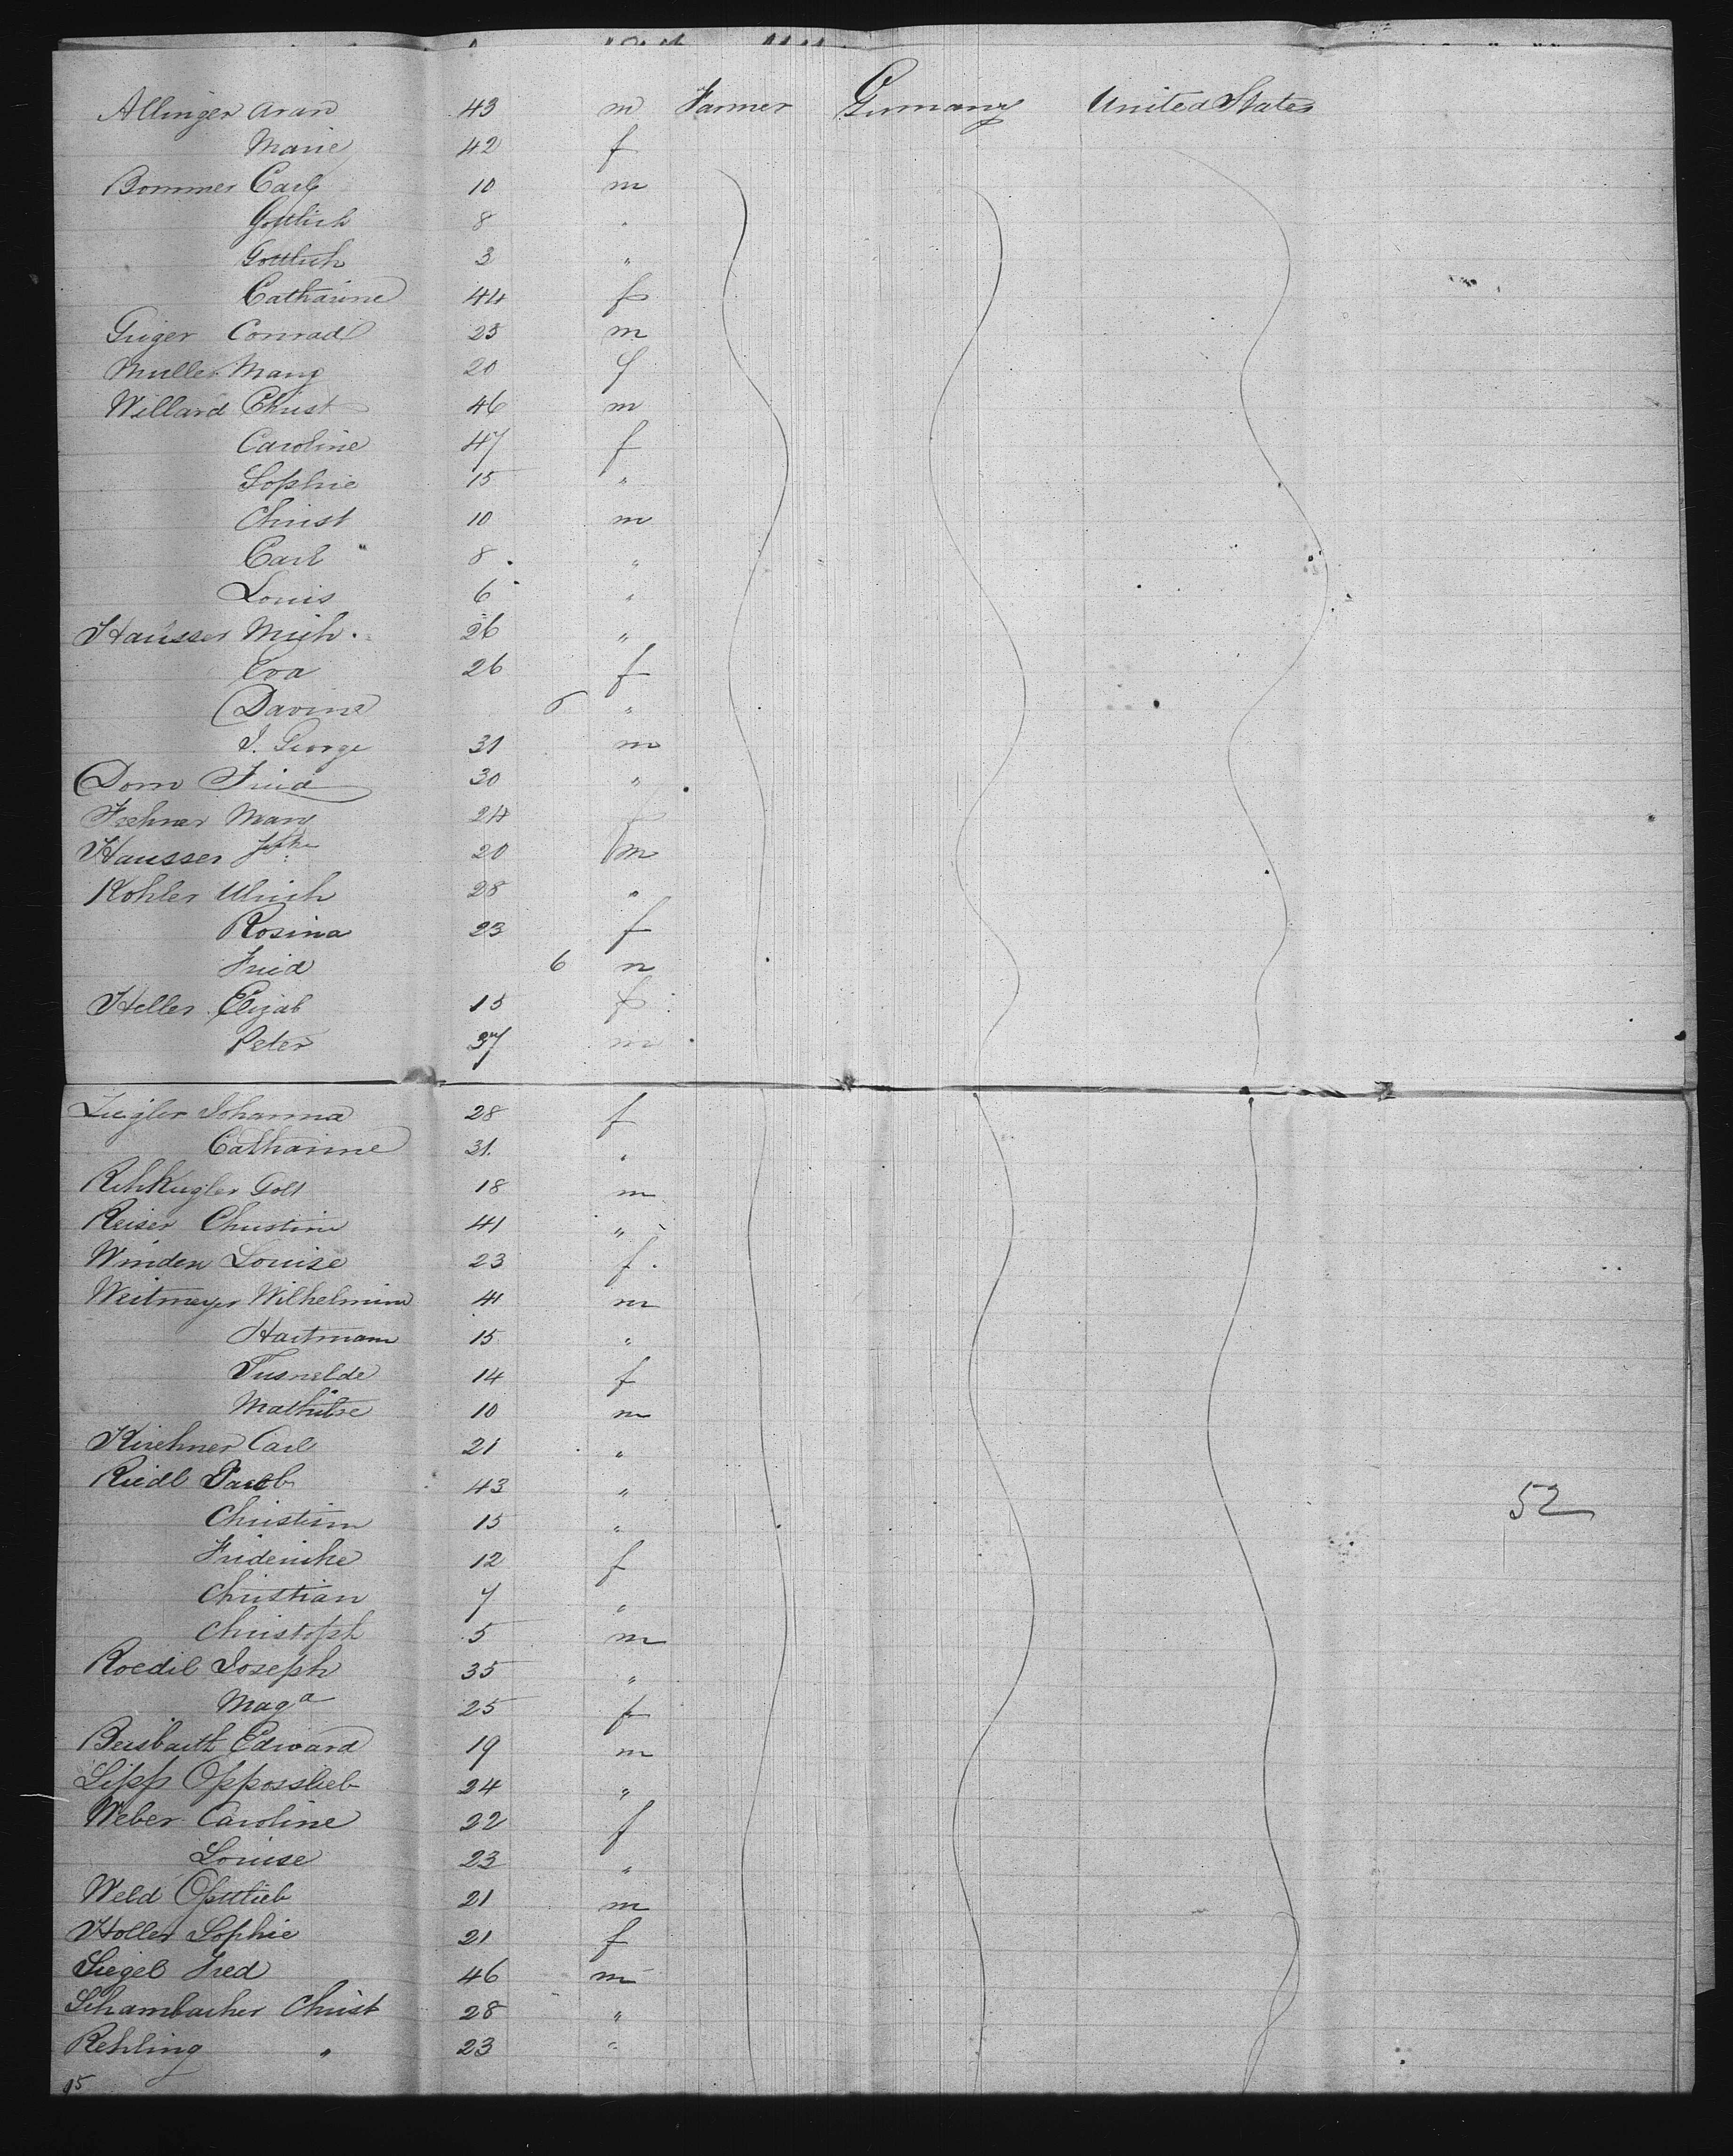 Allinger Aran 43 m Farmer Germany United States
Marie 42 f
Bommer Carl 10 m
Gottlieb 8 "
Gottlieb 3 "
Catharine 44 f
Geiger Conrad 25 m
Muller Mary 20 f
Willard Christ 46 m
Caroline 47 f
Sophie 15 "
Christ 10 m
Carl 8 "
Louis 6 "
Hausser Mich. 26 "
Eva 26 f
Davine 6 "
J. George 31 m
Dorn Fried 30 "
Fechner Mary 24 f
Hausser 20 m
Kohler Ulrich 28 "
Rosina 23 f
Fried 6 m
Heller Elizab 15 f
Peter 37 m
Ziegler Johanna 28 f
Catharine 31. "
18 m
Reiser Christine 41 "
Winden Louise 23 f
Weitmeyer Wilhelmine 41 m
Hartmann 15 "
Tusnelde 14 f
10 m
Kirchner Carl 21 "
Riedl Jacob 43 "
Christian 15 "
Friderike 12 f
Christian 7 "
Christoph 5 m
Roedil Joseph 35 "
Mag a 25 f
Beisbarth Edward 19 m
Lipp 24 "
Weber Caroline 22 f
Louise 23 "
Weld Gottlieb 21 m
Holler Sophie 21 f
Siegel Fred 46 m
Schambacher Christ 28 "
Rehling " 23 "
52
15